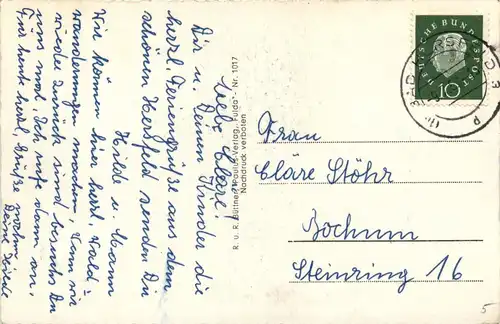 Liebe Cläre!
Dir u. Deinen Kinder die
herzl. Feriengrüße aus dem
schönen Hersfeld senden Dir
Hilde u. Mann
Wir können hier herrl. Wald-
wanderungen machen. Wenn wir
wieder zurück sind besuchs Du
uns mal. Ich rufe dann an.
Für heut herzl. Grüße
Deine Hilde
R. u. R. Büttner, Paulus-Verlag, Fulda - Nr. 1017
Nachdruck verboten
DEUTSCHE BUNDESPOST
10
BAD HERSFELD
Frau
Cläre Stöhr
Bochum
Steinring 16
5